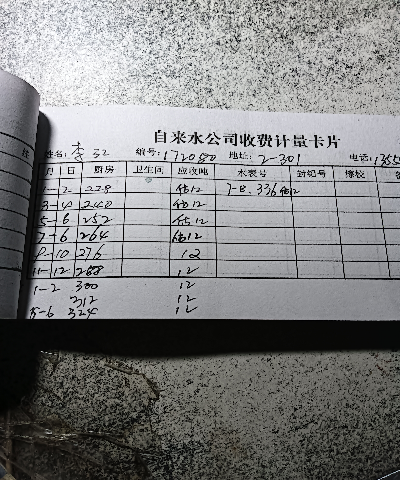 自来水公司收费计量卡片
姓名: 李 编号: 1720 地址: 2-301 电话: 1355
月 日 厨房 卫生间 应收吨 水表号 封铅号 修校
1-2 228 12 7-8. 336 12
3-4 240 12
5-6 252 12
7-8 264 12
9-10 276 12
11-12 288 12
1-2 300 12
312 12
5-6 324 12